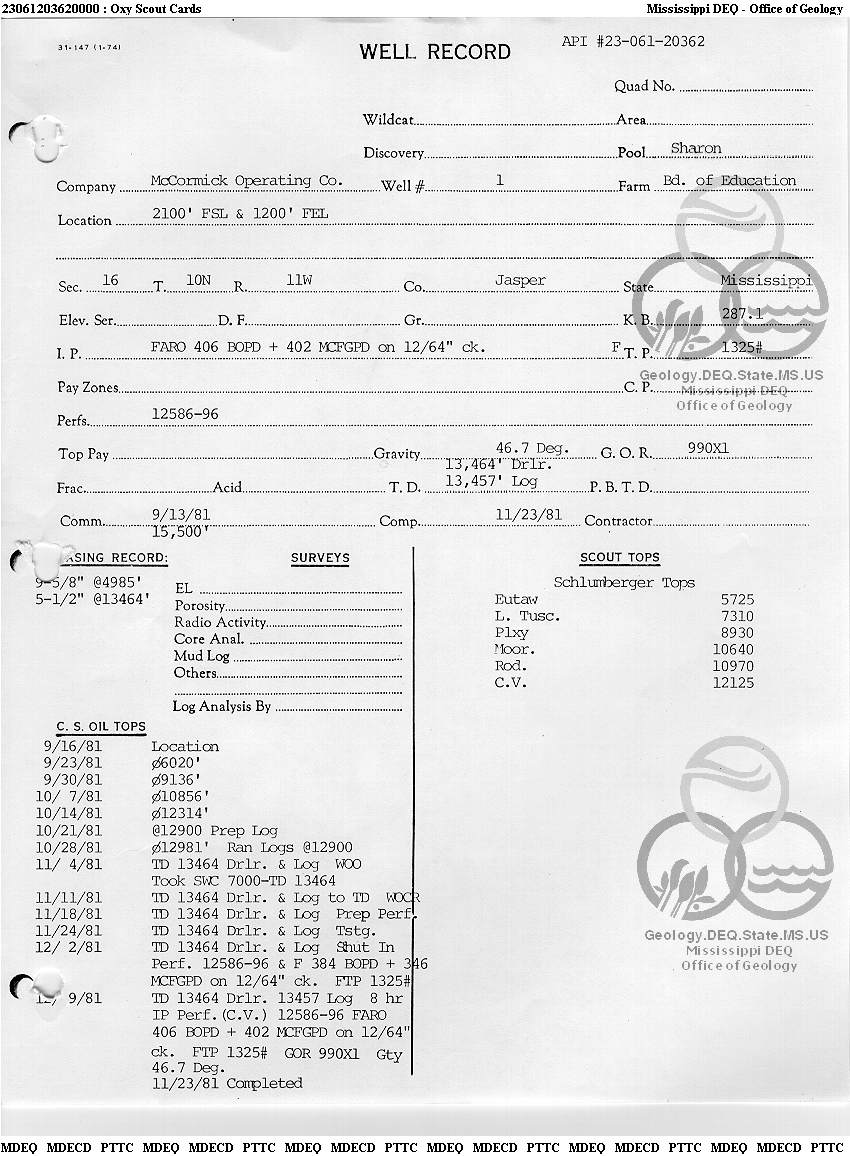 23061203620000 : Oxy Scout Cards Mississippi DEQ - Office of Geology
31-147 (1-74)
WELL RECORD
API #23-061-20362
Quad No.
Wildcat Area
Discovery Pool Sharon
Company McCormick Operating Co. Well # 1 Farm Bd. of Education
Location 2100' FSL & 1200' FEL
Sec. 16 T. 10N R. 11W Co. Jasper State Mississippi
Elev. Ser. D. F. Gr. K. B. 287.1
I. P. FARO 406 BOPD + 402 MCFGPD on 12/64" ck. F T. P. 1325#
Geology.DEQ.State.MS.US
Pay Zones C. P.
Mississippi DEQ
Office of Geology
Perfs. 12586-96
Top Pay Gravity 46.7 Deg. G. O. R. 990X1
13,464' Drlr.
Frac. Acid T. D. 13,457' Log P. B. T. D.
Comm. 9/13/81 Comp. 11/23/81 Contractor
15,500'
ASING RECORD: SURVEYS SCOUT TOPS
9-5/8" @4985'
5-1/2" @13464'
EL
Porosity
Radio Activity
Core Anal.
Mud Log
Others
Log Analysis By
Schlumberger Tops
Eutaw 5725
L. Tusc. 7310
Plxy 8930
Moor. 10640
Rod. 10970
C.V. 12125
C. S. OIL TOPS
9/16/81 Location
9/23/81 ∅6020'
9/30/81 ∅9136'
10/ 7/81 ∅10856'
10/14/81 ∅12314'
10/21/81 @12900 Prep Log
10/28/81 ∅12981' Ran Logs @12900
11/ 4/81 TD 13464 Drlr. & Log WOO
Took SWC 7000-TD 13464
11/11/81 TD 13464 Drlr. & Log to TD WOCR
11/18/81 TD 13464 Drlr. & Log Prep Perf.
11/24/81 TD 13464 Drlr. & Log Tstg.
12/ 2/81 TD 13464 Drlr. & Log Shut In
Perf. 12586-96 & F 384 BOPD + 346
MCFGPD on 12/64" ck. FTP 1325#
12/ 9/81 TD 13464 Drlr. 13457 Log 8 hr
IP Perf.(C.V.) 12586-96 FARO
406 BOPD + 402 MCFGPD on 12/64"
ck. FTP 1325# GOR 990X1 Gty
46.7 Deg.
11/23/81 Completed
Geology.DEQ.State.MS.US
Mississippi DEQ
Office of Geology
MDEQ MDECD PTTC MDEQ MDECD PTTC MDEQ MDECD PTTC MDEQ MDECD PTTC MDEQ MDECD PTTC MDEQ MDECD PTTC